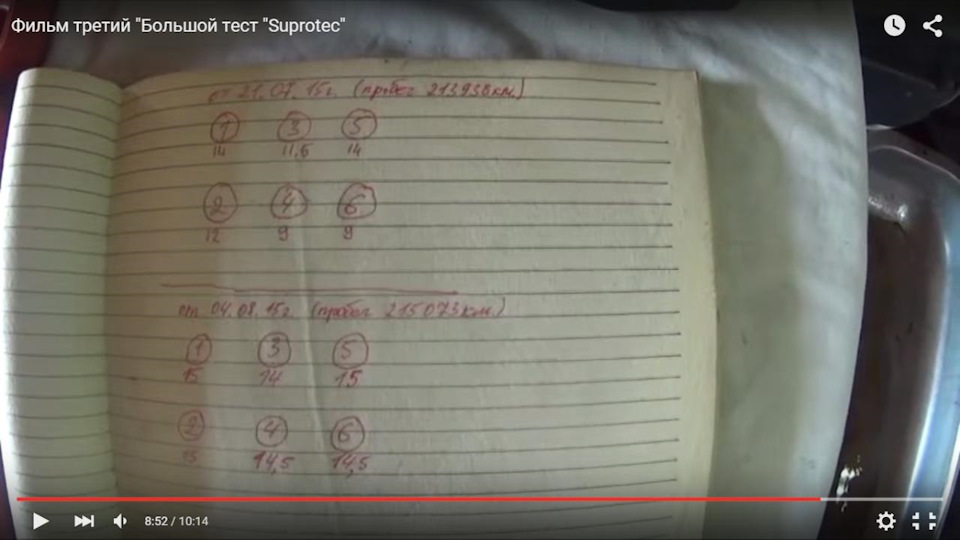 Фильм третий "Большой тест "Suprotec"
от 21.07.15г. (пробег 213938км.)
1 3 5
14 11,5 14
2 4 6
12 9 9
от 04.08.15г. (пробег 215073км.)
1 3 5
15 14 15
2 4 6
15 14,5 14,5
8:52 / 10:14